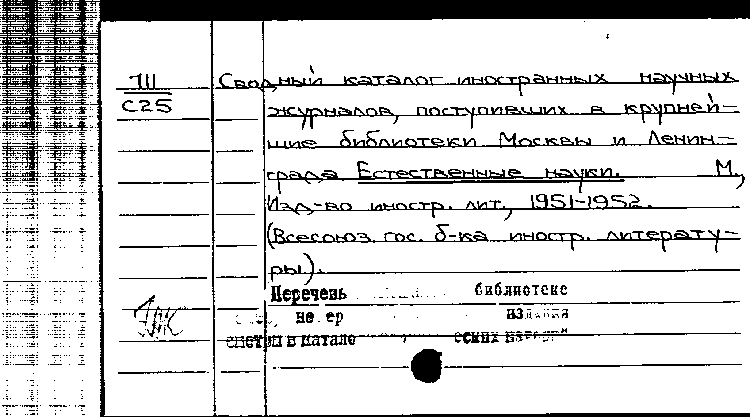 711
С25
Сводный каталог иностранных научных
журналов, поступивших в крупней-
шие библиотеки Москвы и Ленин-
града Естественные науки. М.,
Изд-во иностр. лит., 1951-1952.
(Всесоюз. гос. б-ка иностр. литерату-
ры).
Перечень библиотеке